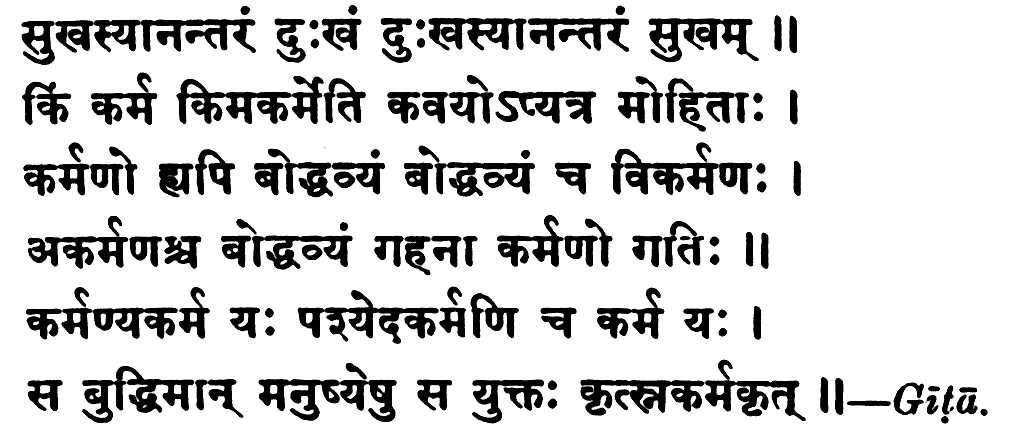 सुखस्यानन्तरं दुःखं दुःखस्यानन्तरं सुखम् ॥
किं कर्म किमकर्मेति कवयोऽप्यत्र मोहिताः ।
कर्मणो ह्यपि बोद्धव्यं बोद्धव्यं च विकर्मणः ।
अकर्मणश्च बोद्धव्यं गहना कर्मणो गतिः ॥
कर्मण्यकर्म यः पश्येदकर्मणि च कर्म यः ।
स बुद्धिमान् मनुष्येषु स युक्तः कृत्स्नकर्मकृत् ॥—Gīṭā.